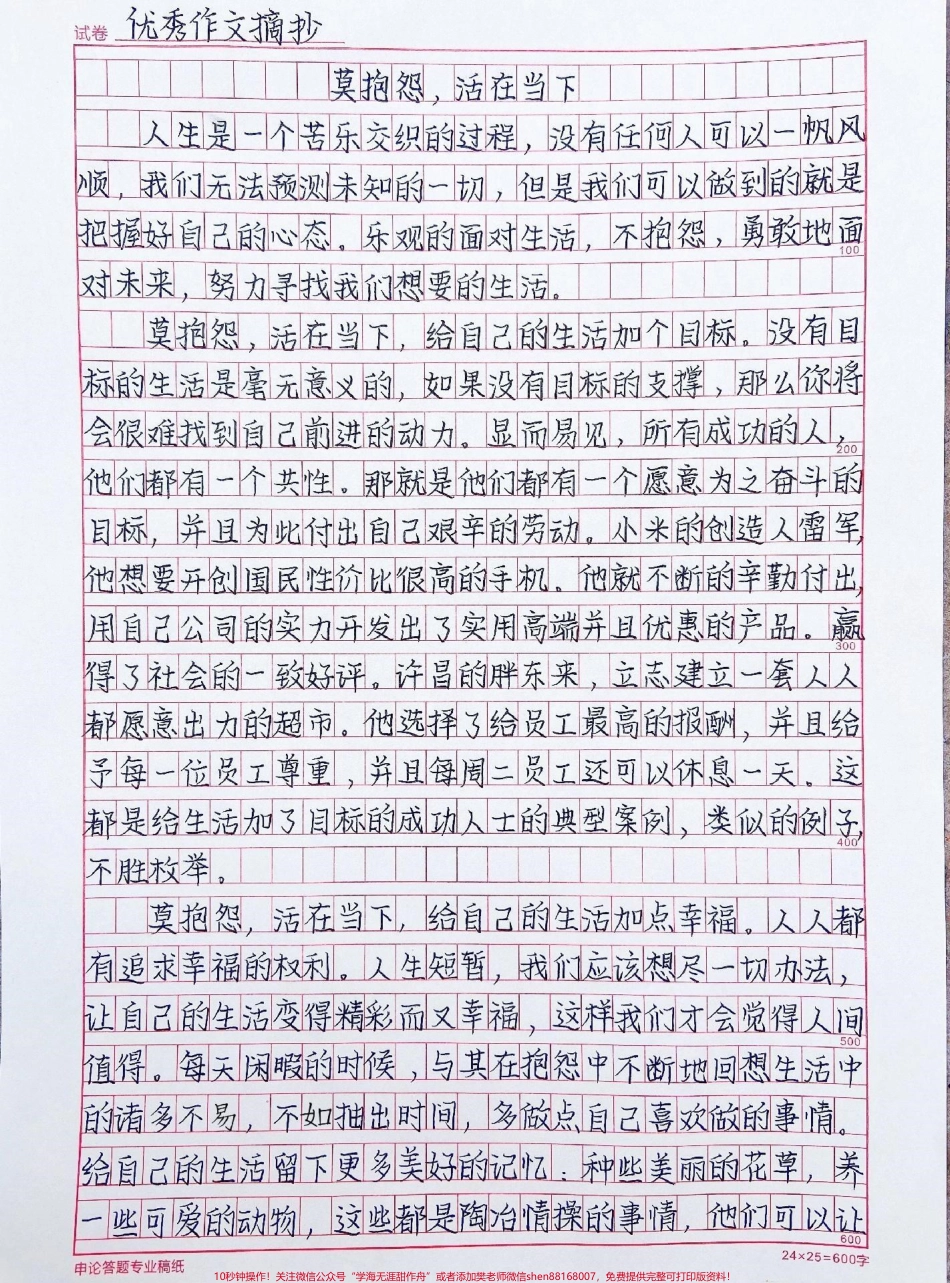 试卷 优秀作文摘抄
莫抱怨，活在当下
人生是一个苦乐交织的过程，没有任何人可以一帆风
顺，我们无法预测未知的一切，但是我们可以做到的就是
把握好自己的心态。乐观的面对生活，不抱怨，勇敢地面
100
对未来，努力寻找我们想要的生活。
莫抱怨，活在当下，给自己的生活加个目标。没有目
标的生活是毫无意义的，如果没有目标的支撑，那么你将
会很难找到自己前进的动力。显而易见，所有成功的人，
200
他们都有一个共性。那就是他们都有一个愿意为之奋斗的
目标，并且为此付出自己艰辛的劳动。小米的创造人雷军，
他想要开创国民性价比很高的手机。他就不断的辛勤付出，
用自己公司的实力开发出了实用高端并且优惠的产品。赢
300
得了社会的一致好评。许昌的胖东来，立志建立一套人人
都愿意出力的超市。他选择了给员工最高的报酬，并且给
予每一位员工尊重，并且每周二员工还可以休息一天。这
都是给生活加了目标的成功人士的典型案例，类似的例子，
400
不胜枚举。
莫抱怨，活在当下，给自己的生活加点幸福。人人都
有追求幸福的权利。人生短暂，我们应该想尽一切办法，
让自己的生活变得精彩而又幸福，这样我们才会觉得人间
500
值得。每天闲暇的时候，与其在抱怨中不断地回想生活中
的诸多不易，不如抽出时间，多做点自己喜欢做的事情。
给自己的生活留下更多美好的记忆：种些美丽的花草，养
一些可爱的动物，这些都是陶冶情操的事情，他们可以让
600
申论答题专业稿纸 24×25=600字
10秒钟操作！关注微信公众号“学海无涯甜作舟”或者添加樊老师微信shen88168007，免费提供完整可打印版资料！